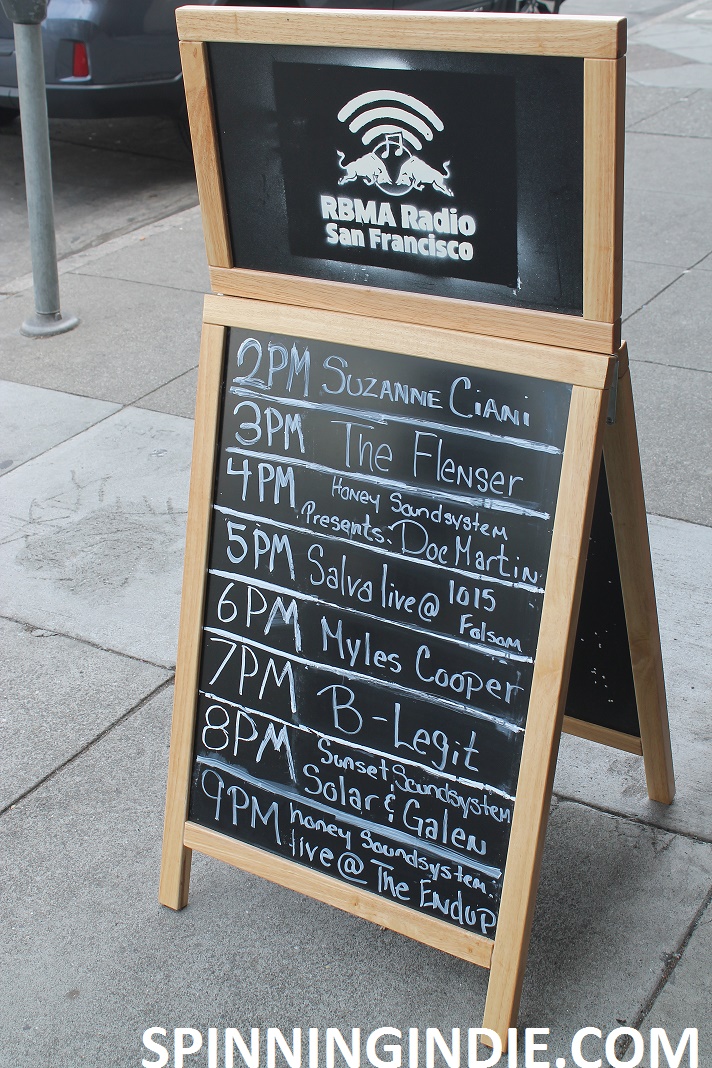 RBMA Radio
San Francisco
2PM SUZANNE CIANI
3PM The Flenser
4PM Honey Soundsystem
Presents: Doc Martin
5PM Salva live @ 1015
Folsom
6PM Myles Cooper
7PM B-Legit
8PM Sunset Soundsystem
Solar & Galen
9PM honey Soundsystem:
live @ The Endup
SPINNINGINDIE.COM